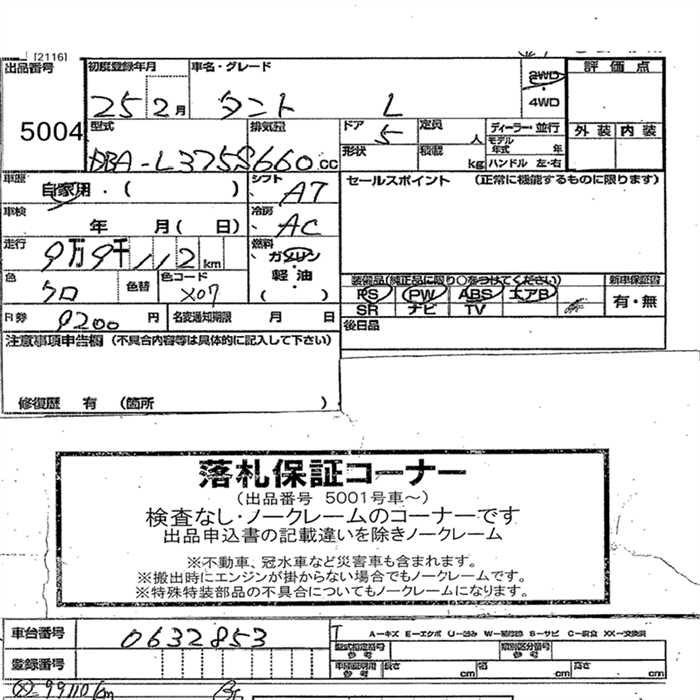 [2116]
出品番号 初度登録年月 車名・グレード 2WD 評価点
5004 25 2月 タント L 4WD
型式 排気量 ドア 5 定員 人 ディーラー・並行 外装 内装
DBA-L375S 660cc 形状 積載 kg モデル年式 年 ハンドル 左・右
車歴 自家用・( ) シフト AT セールスポイント (正常に機能するものに限ります)
車検 年 月( 日) 冷房 AC
走行 9万9千112km 燃料 ガソリン
色 クロ 色替 色コード X07 軽・油 ( ) 装備品(純正品に限り○をつけてください) 新車保証書
PS PW ABS エアB 有・無
SR ナビ TV
R券 9200円 名変通知期限 月 日 後日品
注意事項申告欄 (不具合内容等は具体的に記入して下さい)
修復歴 有 (箇所 )
落札保証コーナー
(出品番号 5001号車~)
検査なし・ノークレームのコーナーです
出品申込書の記載違いを除きノークレーム
※不動車、冠水車など災害車も含まれます。
※搬出時にエンジンが掛からない場合でもノークレームです。
※特殊特装部品の不具合についてもノークレームになります。
車台番号 0632853 A-キズ E-エクボ U-凹み W-補修跡 S-サビ C-腐食 XX-交換済
型式指定番号 参考 類別区分番号 参考
登録番号 車検証用 参考 長さ cm 幅 cm 高さ cm
99110km